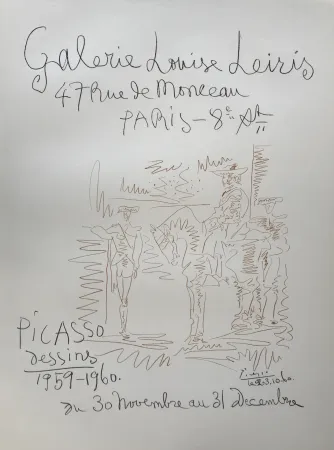 Galerie Louise Leiris
47 Rue de Monceau
PARIS - 8e Art
PICASSO
dessins
1959-1960.
du 30 Novembre au 31 Decembre
Picasso